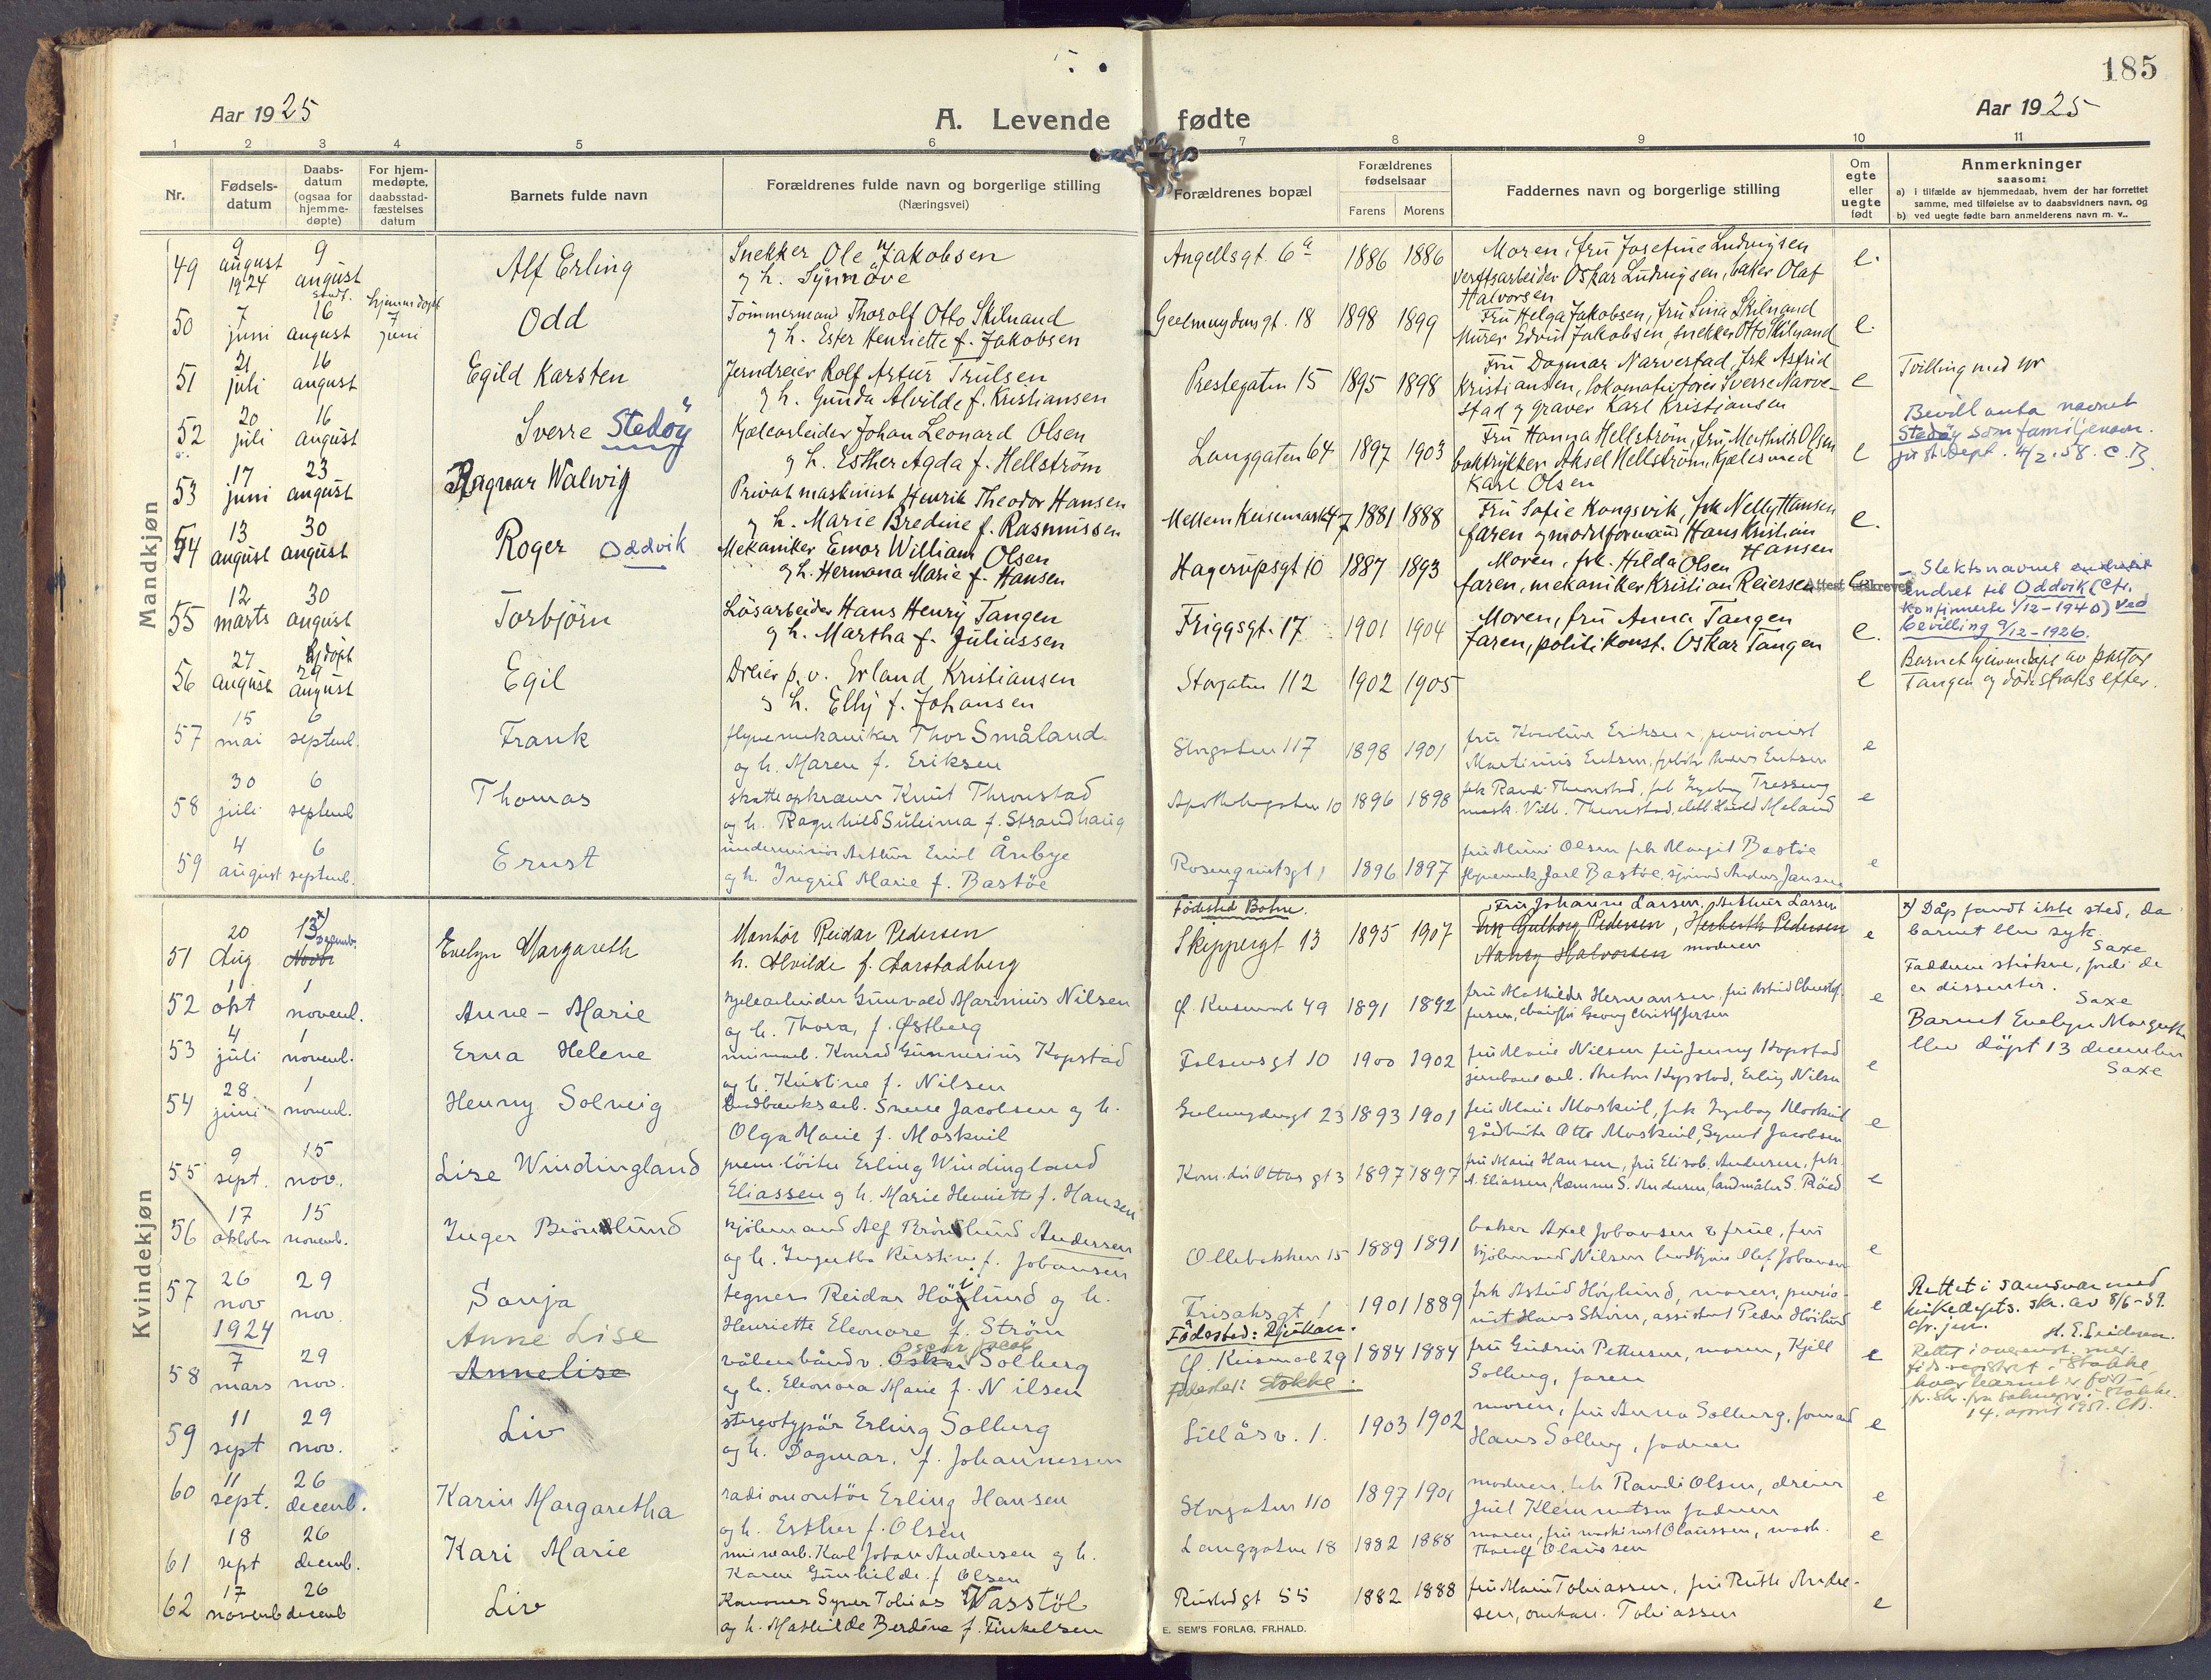 185
Aar 1925
A. Levende fødte
Aar 1925
1 2 3 4 5 6 7 8 9 10 11
Nr.
Fødsels-
datum
Daabs-
datum
(ogsaa for
hjemme-
døpte)
For hjem-
medøpte,
daabsstad-
fæstelses
datum
Barnets fulde navn
Forældrenes fulde navn og borgerlige stilling
(Næringsvei)
Forældrenes bopæl
Forældrenes
fødselsaar
Farens Morens
Faddernes navn og borgerlige stilling
Om
egte
eller
uegte
født
Anmerkninger
saasom:
a) i tilfælde av hjemmedaab, hvem der har forrettet
samme, med tilføielse av to daabsvidners navn, og
b) ved uegte fødte barn anmelderens navn m. v..
Mandkjøn
49 9 august 1924 9 august Alf Erling Snekker Ole Jakobsen
g h. Synnöve
Angellsgt. 6a 1886 1886 Moren, fru Josefine Ludvigsen
verftsarbeider Oskar Ludvigsen, baker Olaf
Halvorsen e.
50 7 juni 16 august hjemmedøpt 7 juni Odd Tömmermand Thorolf Otto Skilnand
g h. Ester Henriette f. Jakobsen
Geelmuydensgt. 18 1898 1899 Fru Helga Jakobsen, fru Lina Skilnand
Murer Edvin Jakobsen, snekker Otto Skilnand e.
51 21 juli 16 august Egild Karsten Jerndreier Rolf Artur Trulsen
g h. Gunda Alvilde f. Kristiansen
Prestegaten 15 1895 1898 Fru Dagmar Narvestad, frk Astrid
Kristiansen, lokomotivförer Sverre Narve-
stad g graver Karl Kristiansen e Tvilling med
52 20 juli 16 august Sverre Stedöy Kjelearbeider Johan Leonard Olsen
g h. Esther Agda f. Hellström
Langgaten 64 1897 1903 Fru Hanna Hellström, fru Mathilde Olsen
boktrykker Aksel Hellström, Kjelesmed
Karl Olsen e
Bevill anta navnet
Stedöy som familjenavn.
just dept. 4/2. 58. C.B.
53 17 juni 23 august Ragnar Walwig Privat maskinist Henrik Theodor Hansen
g h. Marie Bredine f. Rasmussen
Mellem Keisemark 47 1881 1888 Fru Sofie Kongsvik, frk Nelly Hansen
faren g Hans Kristian
Hansen e.
54 13 august 30 august Roger Oddvik Mekaniker Emor William Olsen
g h. Hermana Marie f. Hansen
Hagerupsgt 10 1887 1893 Moren, frk. Hilda Olsen
faren, mekaniker Kristian Reiersen e
Attest utskrevet
Slektsnavnet
endret til Oddvik (cfr.
konfirmerte 1/12-1940) ved
bevilling 9/12-1926.
55 12 marts 30 august Torbjörn Lösarbeider Hans Henry Tangen
g h. Martha f. Juliussen
Friggsgt. 17 1901 1904 Moren, fru Anna Tangen
faren, politikonst. Oskar Tangen e.
56 27 august hj.døpt 29 august Egil Dreier p. v. Erland Kristiansen
g h. Elly f. Johansen
Storgaten 112 1902 1905 e
Barnet hjemmedøpt av pastor
Tangen og döde straks efter.
57 15 mai 6 septemb. Frank flyvemekaniker Thor Småland
og h. Maren f. Eriksen
Storgaten 117 1898 1901 fru Karoline Eriksen, pensionist
Martinius e
58 30 juli 6 septemb Thomas skatteopkræver Knut Thronstad
og h. Ragnhild Suleima f. Strandhaug
Apothekergaten 10 1896 1898 frk Randi Thronstad, frk Ingeborg Tresseng
mask. Vilh. Thronstad, Harald Meland e
59 4 august 6 septemb. Ernst Arthur Emil Årbye
og h. Ingrid Marie f. Bastöe
Rosenqvistsgt 1 1896 1897 fru Olsen frk Margit Bastöe
flyvemek. Jarl Bastöe, Anders Jansen e
Kvindekjøn
51 20 Aug 13 x) Decemb. Novbr Evelyn Margareth Montör Reidar Pedersen
h. Alvilde f. Aarstadberg
Fødested Botne.
Skippergt 13 1895 1907 Fru Johanne Larsen, Arthur Larsen
Frk Gulborg Pedersen, Herberth Pedersen
Halvorsen moderen e
x) Dåp fandt ikke sted, da
barnet blev syk.
Saxe
Fadderne strökne, fordi de
er dissenter.
Saxe
Barnet Evelyn Margareth
blev döpt 13 december
Saxe
52 1 okt 1 novemb. Anne-Marie kjelearbeider Gunvald Marinius Nilsen
og h. Thora, f. Østberg
Ø. Keisemark 49 1891 1892 fru Mathilde Hermansen, fru Astrid Christof-
fersen, chauffør Georg Christoffersen e
53 4 juli 1 novemb. Erna Helene minearb. Konrad Gunnerius Kopstad
og h. Kristine f. Nilsen
Falsensgt 10 1900 1902 fru Marie Nilsen fru Jenny Kopstad
jernbanearb. Anton Kopstad, Erling Nilsen e
54 28. juni 1 novemb. Henny Solveig Sverre Jacobsen og h.
Olga Marie f. Moskvil
Geelmuydengt 23 1893 1901 fru Marie Moskvil, frk Ingeborg Moskvil
Otto Moskvil, Jacobsen e
55 9 sept. 15 nov. Lise Windingland prem.löitn Erling Windingland
Eliassen g h. Marie Henriette f. Hansen
Kom.dr Ottos gt 3 1897 1897 fru Marie Hansen, fru Elisab. Andersen, frk.
A. Eliassen, Kæmner S. Andersen, landmåler S. Röed e
56 17 oktober 15 novemb. Inger Brönlund Alf Brönlund Andersen
og h. Kirstine f. Johansen
Ollebakken 15 1889 1891 baker Axel Johansen & frue, fru
Nilsen Olaf Johansen e
57 26 nov 1924 29 nov. Sonja tegner Reidar Höilund og h.
Henriette Eleonore f. Ström
Frisaksgt 1 1901 1889 frk Astrid Höylund, moren, pensio-
nist Hans Ström, assistent Peder Höilund e
Fødested: Rjukan.
Rettet i samsvar med
kirkedepts. skr. av 8/6-39.
cfr. jrn.
58 7 mars 29 nov. Anne Lise
Annelise
Oscar Jacob
våbenhåndv. Oskar Solberg
og h. Eleonora Marie f. Nilsen
Ø. Keisemark 29 1884 1884 fru Gudrun Pettersen, moren, Kjell
Solberg, faren e
Fødested: Stokke.
Rettet i overenst. med
föds.registret i Stokke
hvor barnet er född
14. april 1951.
59 11 sept 29 nov. Liv stereotypör Erling Solberg
og h. Dagmar, f. Johannessen
Lillåsv. 1. 1903 1902 moren, fru Anna Solberg, formand
Hans Solberg, faderen e
60 11 sept. 26 decemb. Karin Margaretha radiomontör Erling Hansen
og h. Esther f. Olsen
Storgaten 110 1897 1901 moderen, frk Randi Olsen, dreier
Juel Klemmetsen faderen e
61 18 sept 26 decemb. Kari Marie minearb. Karl Johan Andersen og h.
Karen Gunhilde f. Olsen
Langgaten 18 1882 1888 moren, fru maskinist Olaussen, mask.
Thoralf Olaussen e
62 17 novemb 26 decemb Liv Kanoner Syver Tobias Wasstöl
og h. Mathilde Berdine f. Finkelsen
Rustadgt 55 1882 1888 fru Marie Tobiassen, fru Ruth Andre-
sen, Tobiassen e
E. SEM'S FORLAG, FR.HALD.